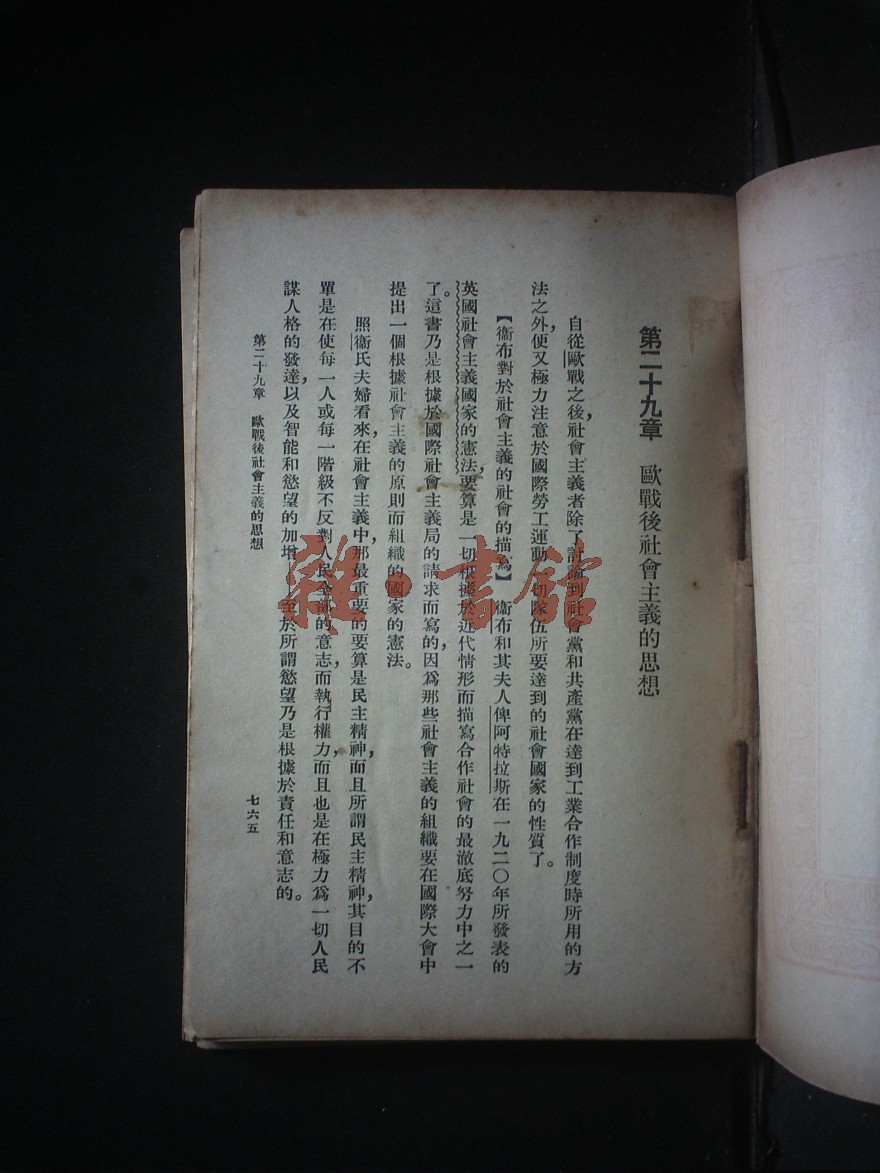 第二十九章　歐戰後社會主義的思想
自從歐戰之後，社會主義者除了討論到社會黨和共產黨在達到工業合作制度時所用的方
法之外，便又極力注意於國際勞工運動一切隊伍所要達到的社會國家的性質了。
【衞布對於社會主義的社會的描寫】　衞布和其夫人俾阿特拉斯在一九二〇年所發表的
英國社會主義國家的憲法，要算是一切根據於近代情形而描寫合作社會的最澈底努力中之一
了。這書乃是根據於國際社會主義局的請求而寫的，因爲那些社會主義的組織要在國際大會中
提出一個根據社會主義的原則而組織的國家的憲法。
照衞氏夫婦看來，在社會主義中，那最重要的要算是民主精神，而且所謂民主精神，其目的不
單是在使每一人或每一階級不反對人民全部的意志，而執行權力，而且也是在極力爲一切人民
謀人格的發達，以及智能和慾望的加增，至於所謂慾望乃是根據於責任和意志的。
第二十九章　歐戰後社會主義的思想
七六五
雜·書館